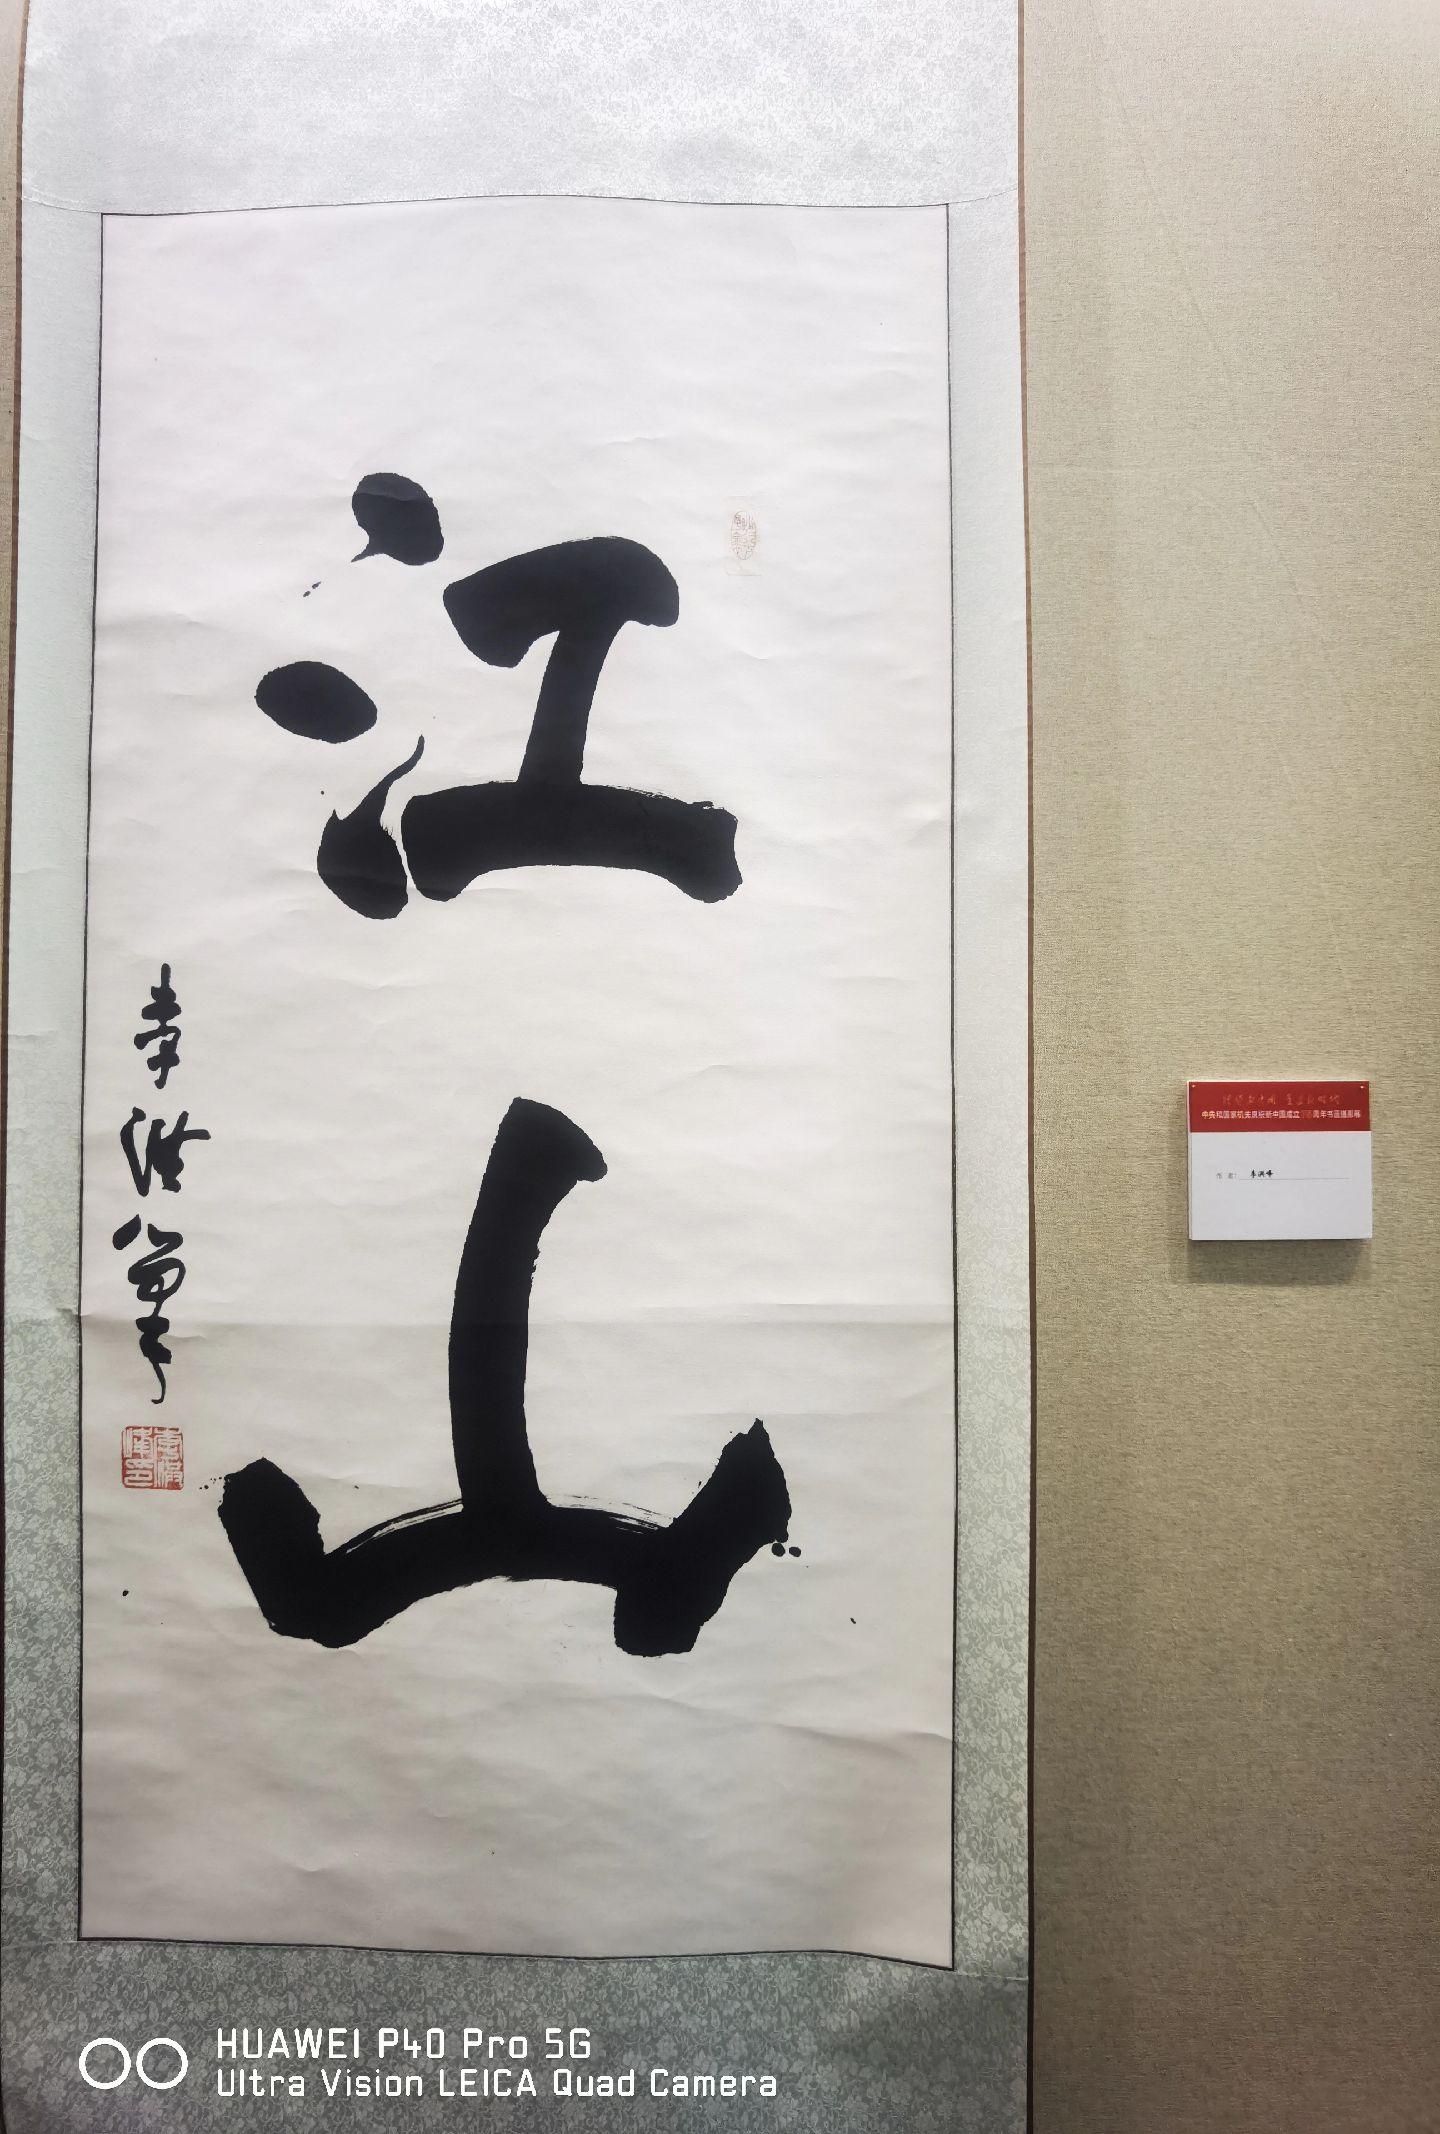 江山
李洪峰
中央和国家机关庆祝新中国成立75周年书画摄影展
作者: 李洪峰
HUAWEI P40 Pro 5G
Ultra Vision LEICA Quad Camera